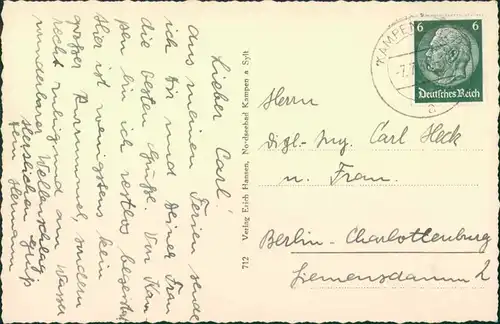 Lieber Carl!
Aus meinen Ferien sende
ich Dir und Deiner Frau
die besten Grüße. Von Kam-
pen bin ich restlos begeistert
Hier ist wenigstens kein
großer Rummel, sondern
recht ruhig und am Wasser
wunderbarer Wellenschlag
Herzlichen Gruß
Dein Hermann
712 Verlag Erich Hansen, Nordseebad Kampen a Sylt
KAMPEN
6 6
Deutsches Reich
a
Herrn
Dipl.-Ing. Carl Heck
u. Frau.
Berlin-Charlottenburg
Siemensdamm 2